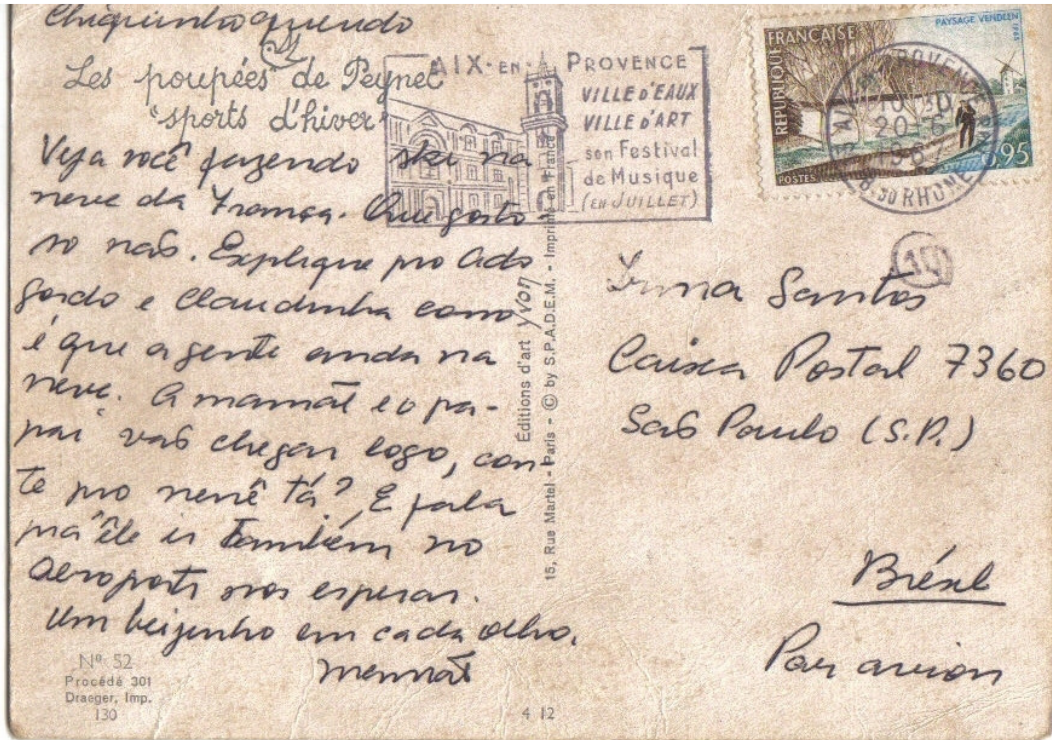 Chiquinho querido
Les poupées de Peynet
"sports d'hiver"
Veja você fazendo ski na
neve da França. Que gosto-
so não. Explique pro Ado
gordo e Claudinha como
é que a gente anda na
neve. A mamãe e o pa-
pai vão chegar logo, con-
te pro nenê tá? E fala
pra êle ir também no
aeroporto nos esperar.
Um beijinho em cada olho.
mamãe
Nº 52
Procédé 301
Draeger, Imp.
130
4 12
Éditions d'art Yvon
15, Rue Martel - Paris - © by S.P.A.D.E.M. - Imprimé en France
AIX-EN-PROVENCE
VILLE D'EAUX
VILLE D'ART
son Festival
de Musique
(EN JUILLET)
RÉPUBLIQUE FRANÇAISE
PAYSAGE VENDÉEN
1965
POSTES
0,95
AIX EN PROVENCE
20-6
1967
B. DU RHONE
Santos
Caixa Postal 7360
São Paulo (S.P.)
Brésil
Par avion